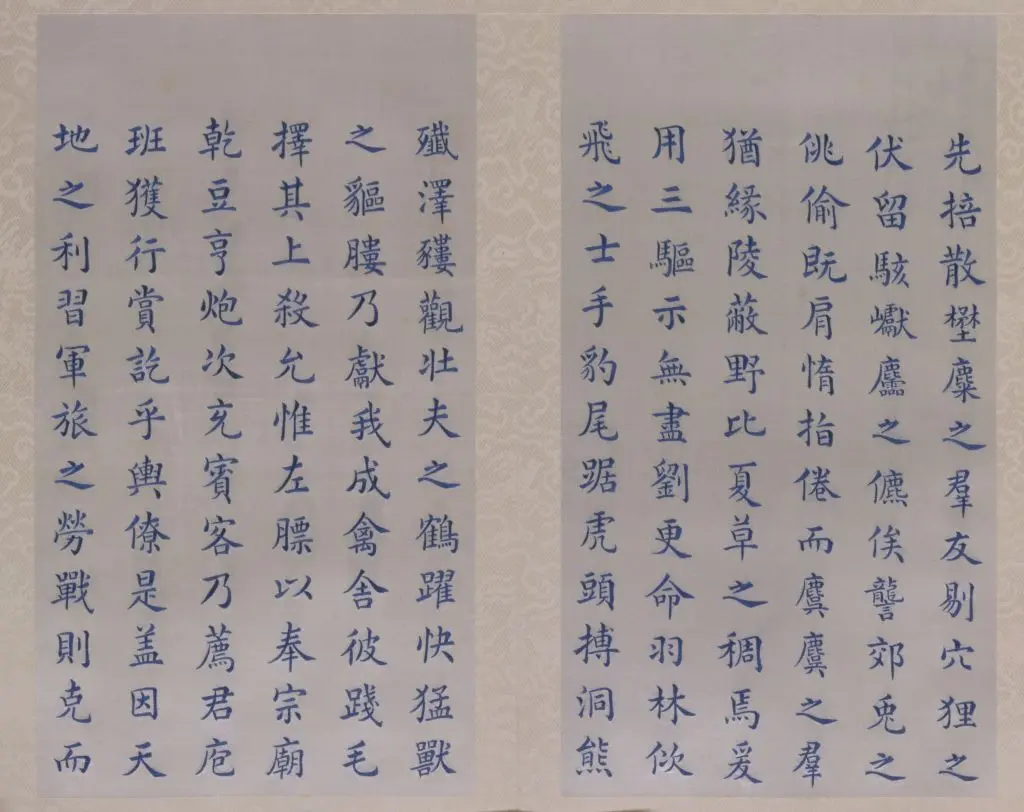 先掊散壄麇之羣友剔穴狸之
伏留駭巘麢之儦俟讋郊兎之
佻偷既肩惰指倦而麌麌之羣
猶緣陵蔽野比夏草之稠焉爰
用三驅示無盡劉更命羽林佽
飛之士手豹尾踞虎頭搏洞熊
殲澤貗觀壯夫之鶴躍快猛獸
之貙膢乃獻我成禽舍彼踐毛
擇其上殺允惟左膘以奉宗廟
乾豆亨炮次充賓客乃薦君庖
班獲行賞訖乎輿僚是盖因天
地之利習軍旅之勞戰則克而